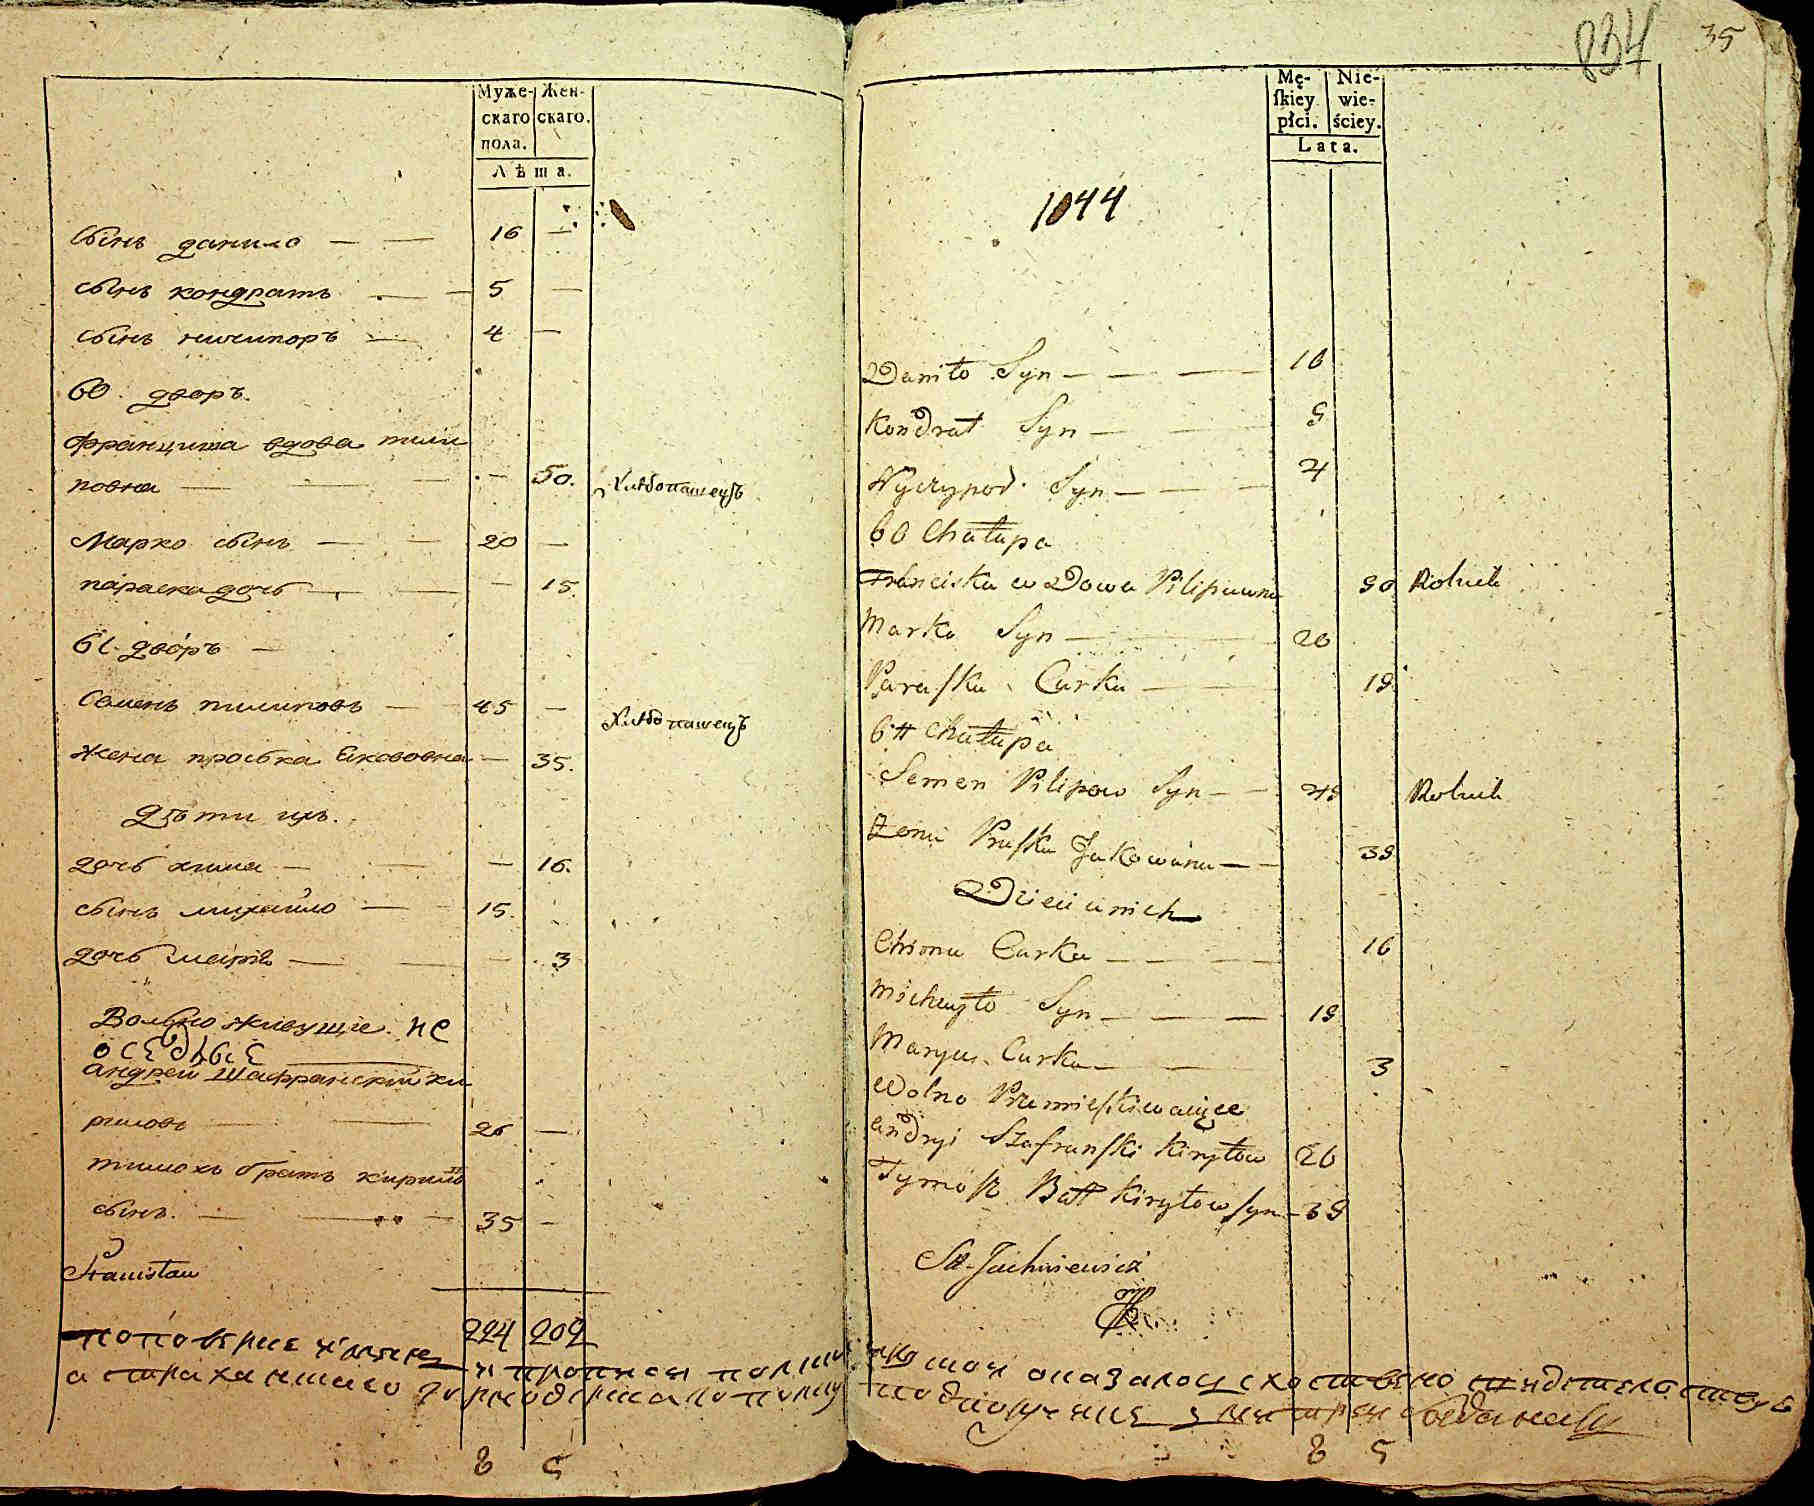 Муже-
скаго
пола.
Жен-
скаго.
Лѣта.
сынъ данило — — 16 —
сынъ кондратъ — — 5 —
сынъ ничипоръ — 4 —
60. дворъ.
францишка вдова пили
повна — — — — 50. Хлѣбопашецъ
Марко сынъ — — 20 —
параска дочь — — — 15.
61. дворъ —
Семенъ пилиповъ — — 45 — Хлѣбопашецъ
жена проська Якововна — 35.
дѣти ихъ.
дочь хима — — — 16.
сынъ михайло — — 15.
дочь марія — — — 3
Вольно живущие не
оседлые
андрей шафранский ки
риловъ — — 26 —
тимохъ братъ кирилъ
сынъ. — — — 35 —
Stanisław
224 202
8 5
834
35
Mę-
ſkiey
płci.
Nie-
wie-
ściey.
Lata.
1044
Daniło Syn — — — 16
Kondrat Syn — — 5
Nyczypor Syn — — — 4
60 Chałupa
Franciska wdowa Pilipowna 50 Rolnik
Marko Syn — — — 20
Paraſka Curka — — 15
61 Chałupa
Semen Pilipow Syn — — 45 Rolnik
Zona Praſka Jakowowna — — 35
Dzieci u nich
Chima Curka — — — 16
Michayło Syn — — — 15
Marya Curka — — 3
Wolno Przemieſzkiwaiące
Andryi Szafranſki Kiryłow 26
Tymoſz Batt Kiryłow ſyn — 35
St. Jachniewicz
8 5